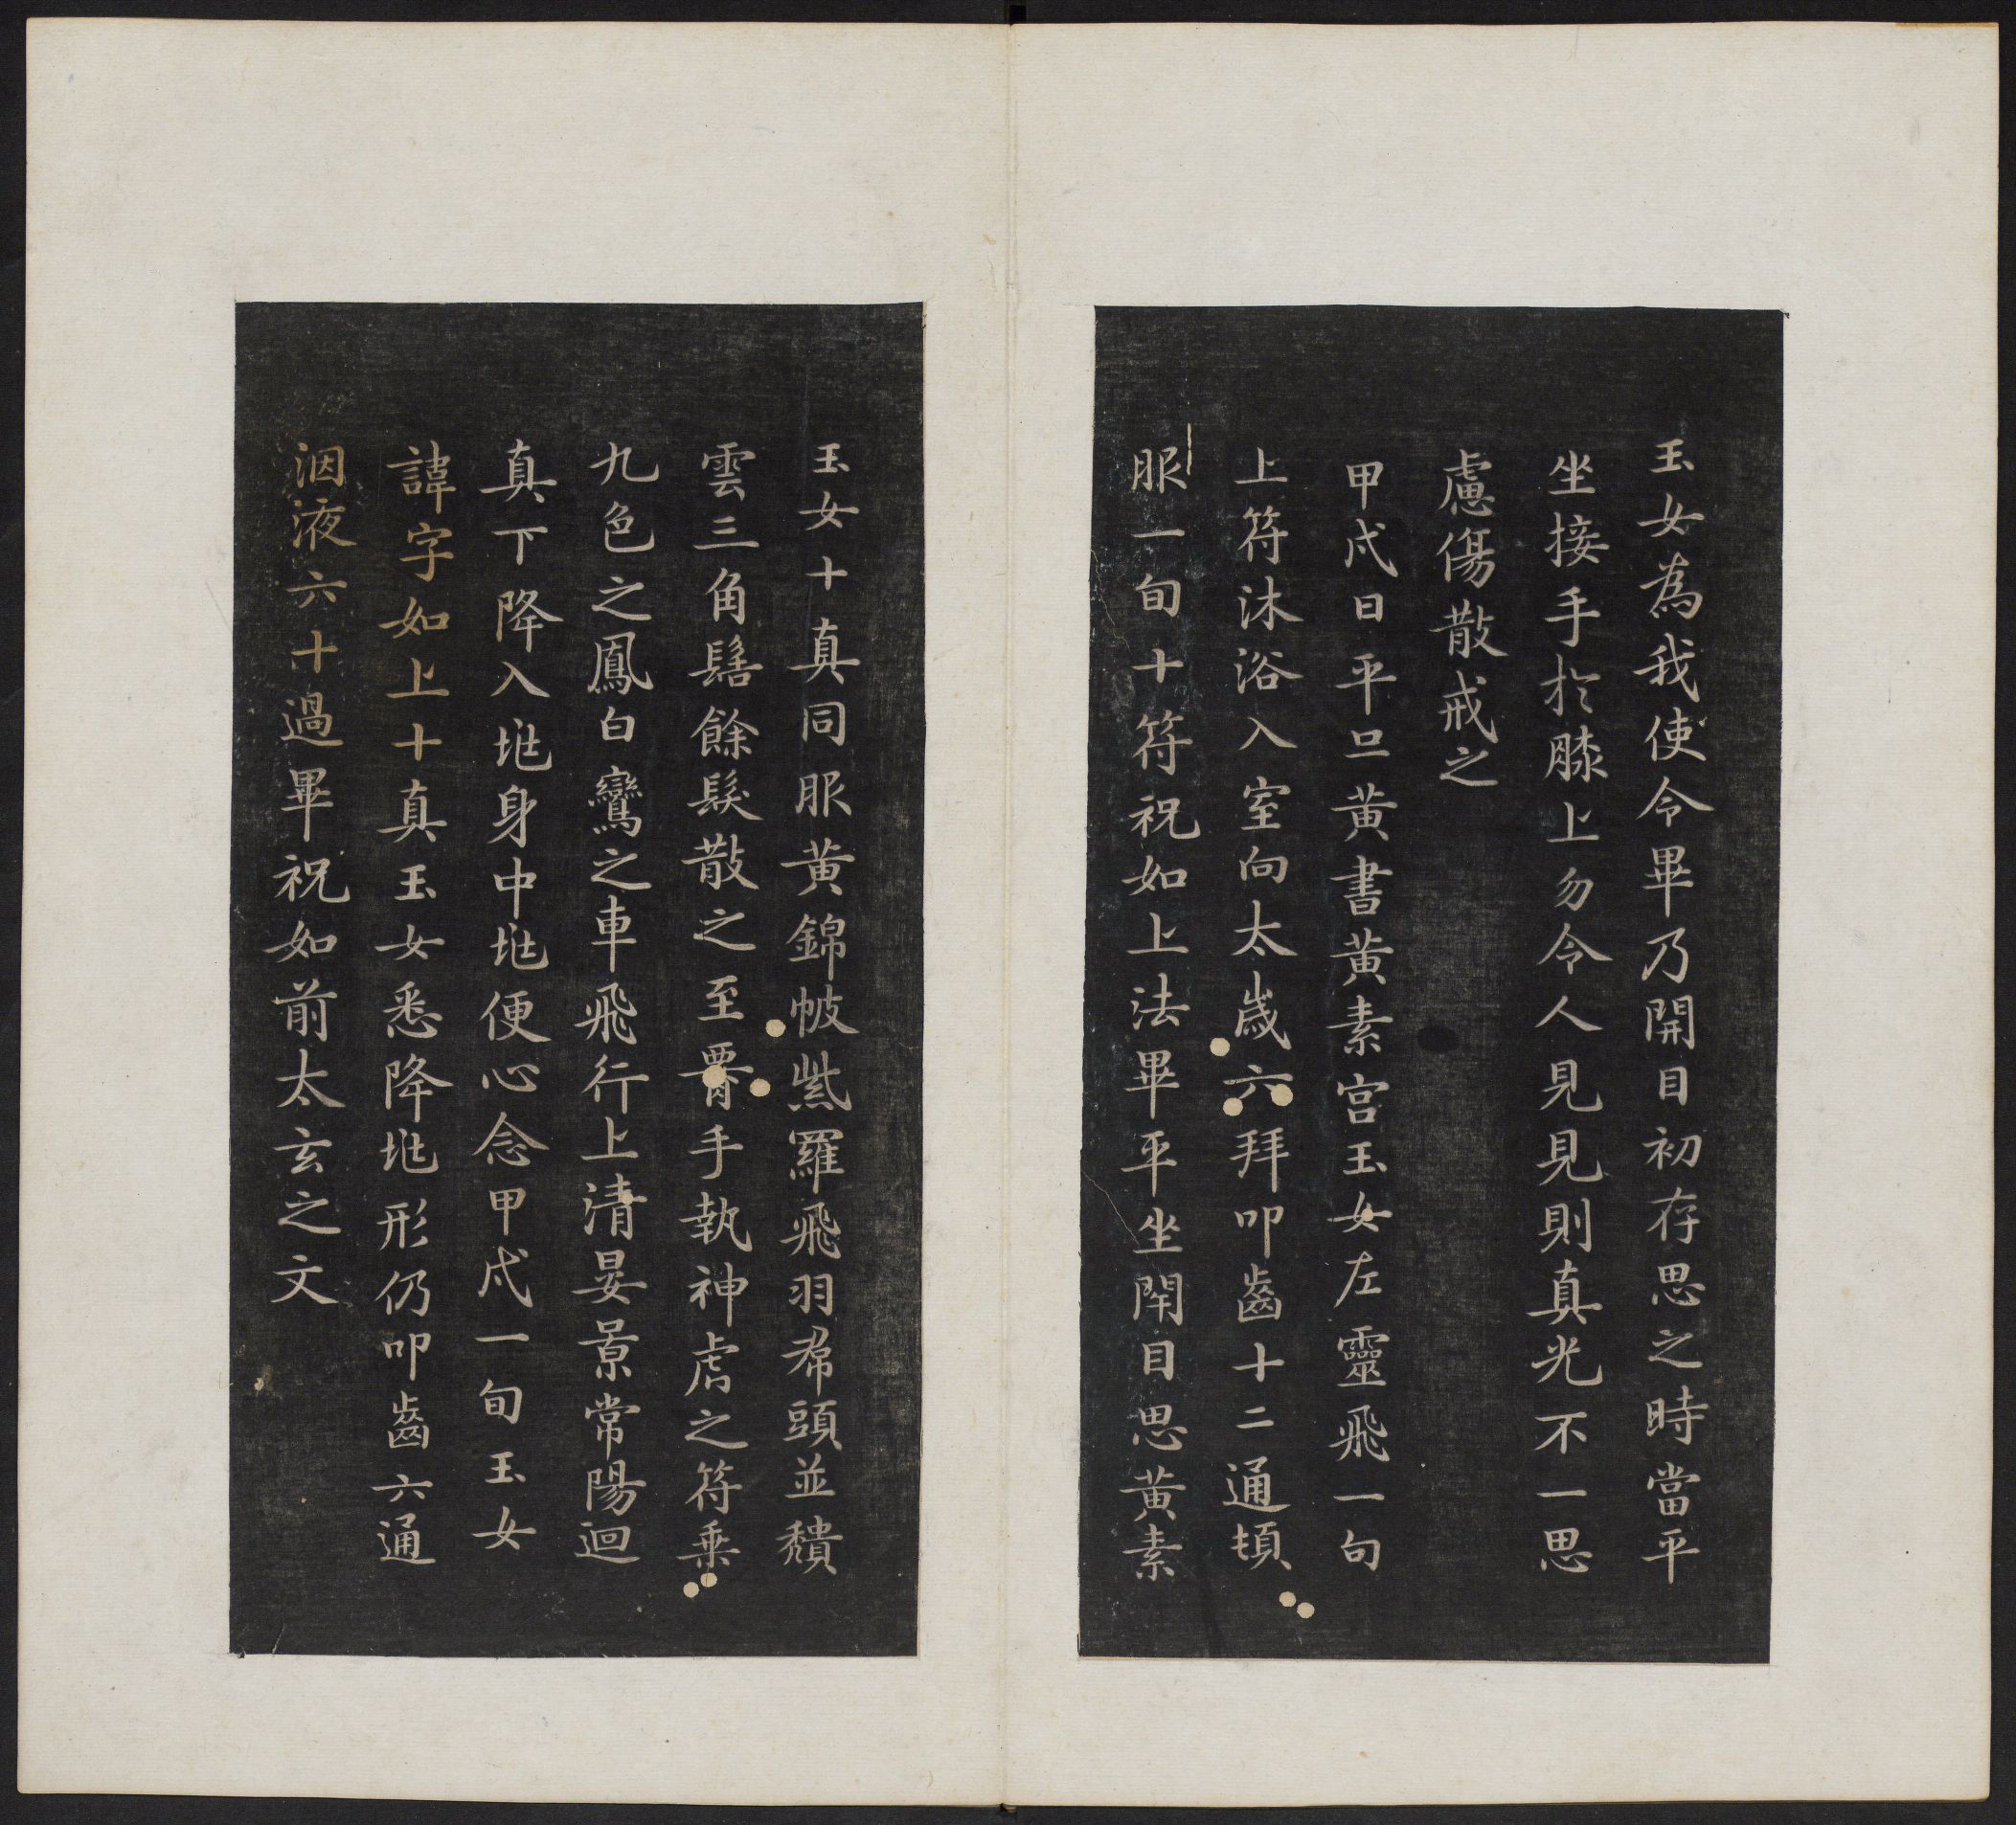 玉女為我使令畢乃開目初存思之時當平
坐接手於膝上勿令人見見則真光不一思
慮傷散戒之
甲戌日平旦黃書黃素宮玉女左靈飛一旬
上符沐浴入室向太歲六拜叩齒十二通頓
服一旬十符祝如上法畢平坐閇目思黃素
玉女十真同服黃錦帔紫羅飛羽帬頭並穨
雲三角髻餘髮散之至署手執神虎之符乘
九色之鳳白鸞之車飛行上清晏景常陽迴
真下降入兆身中兆便心念甲戌一旬玉女
諱字如上十真玉女悉降兆形仍叩齒六通
洇液六十過畢祝如前太玄之文